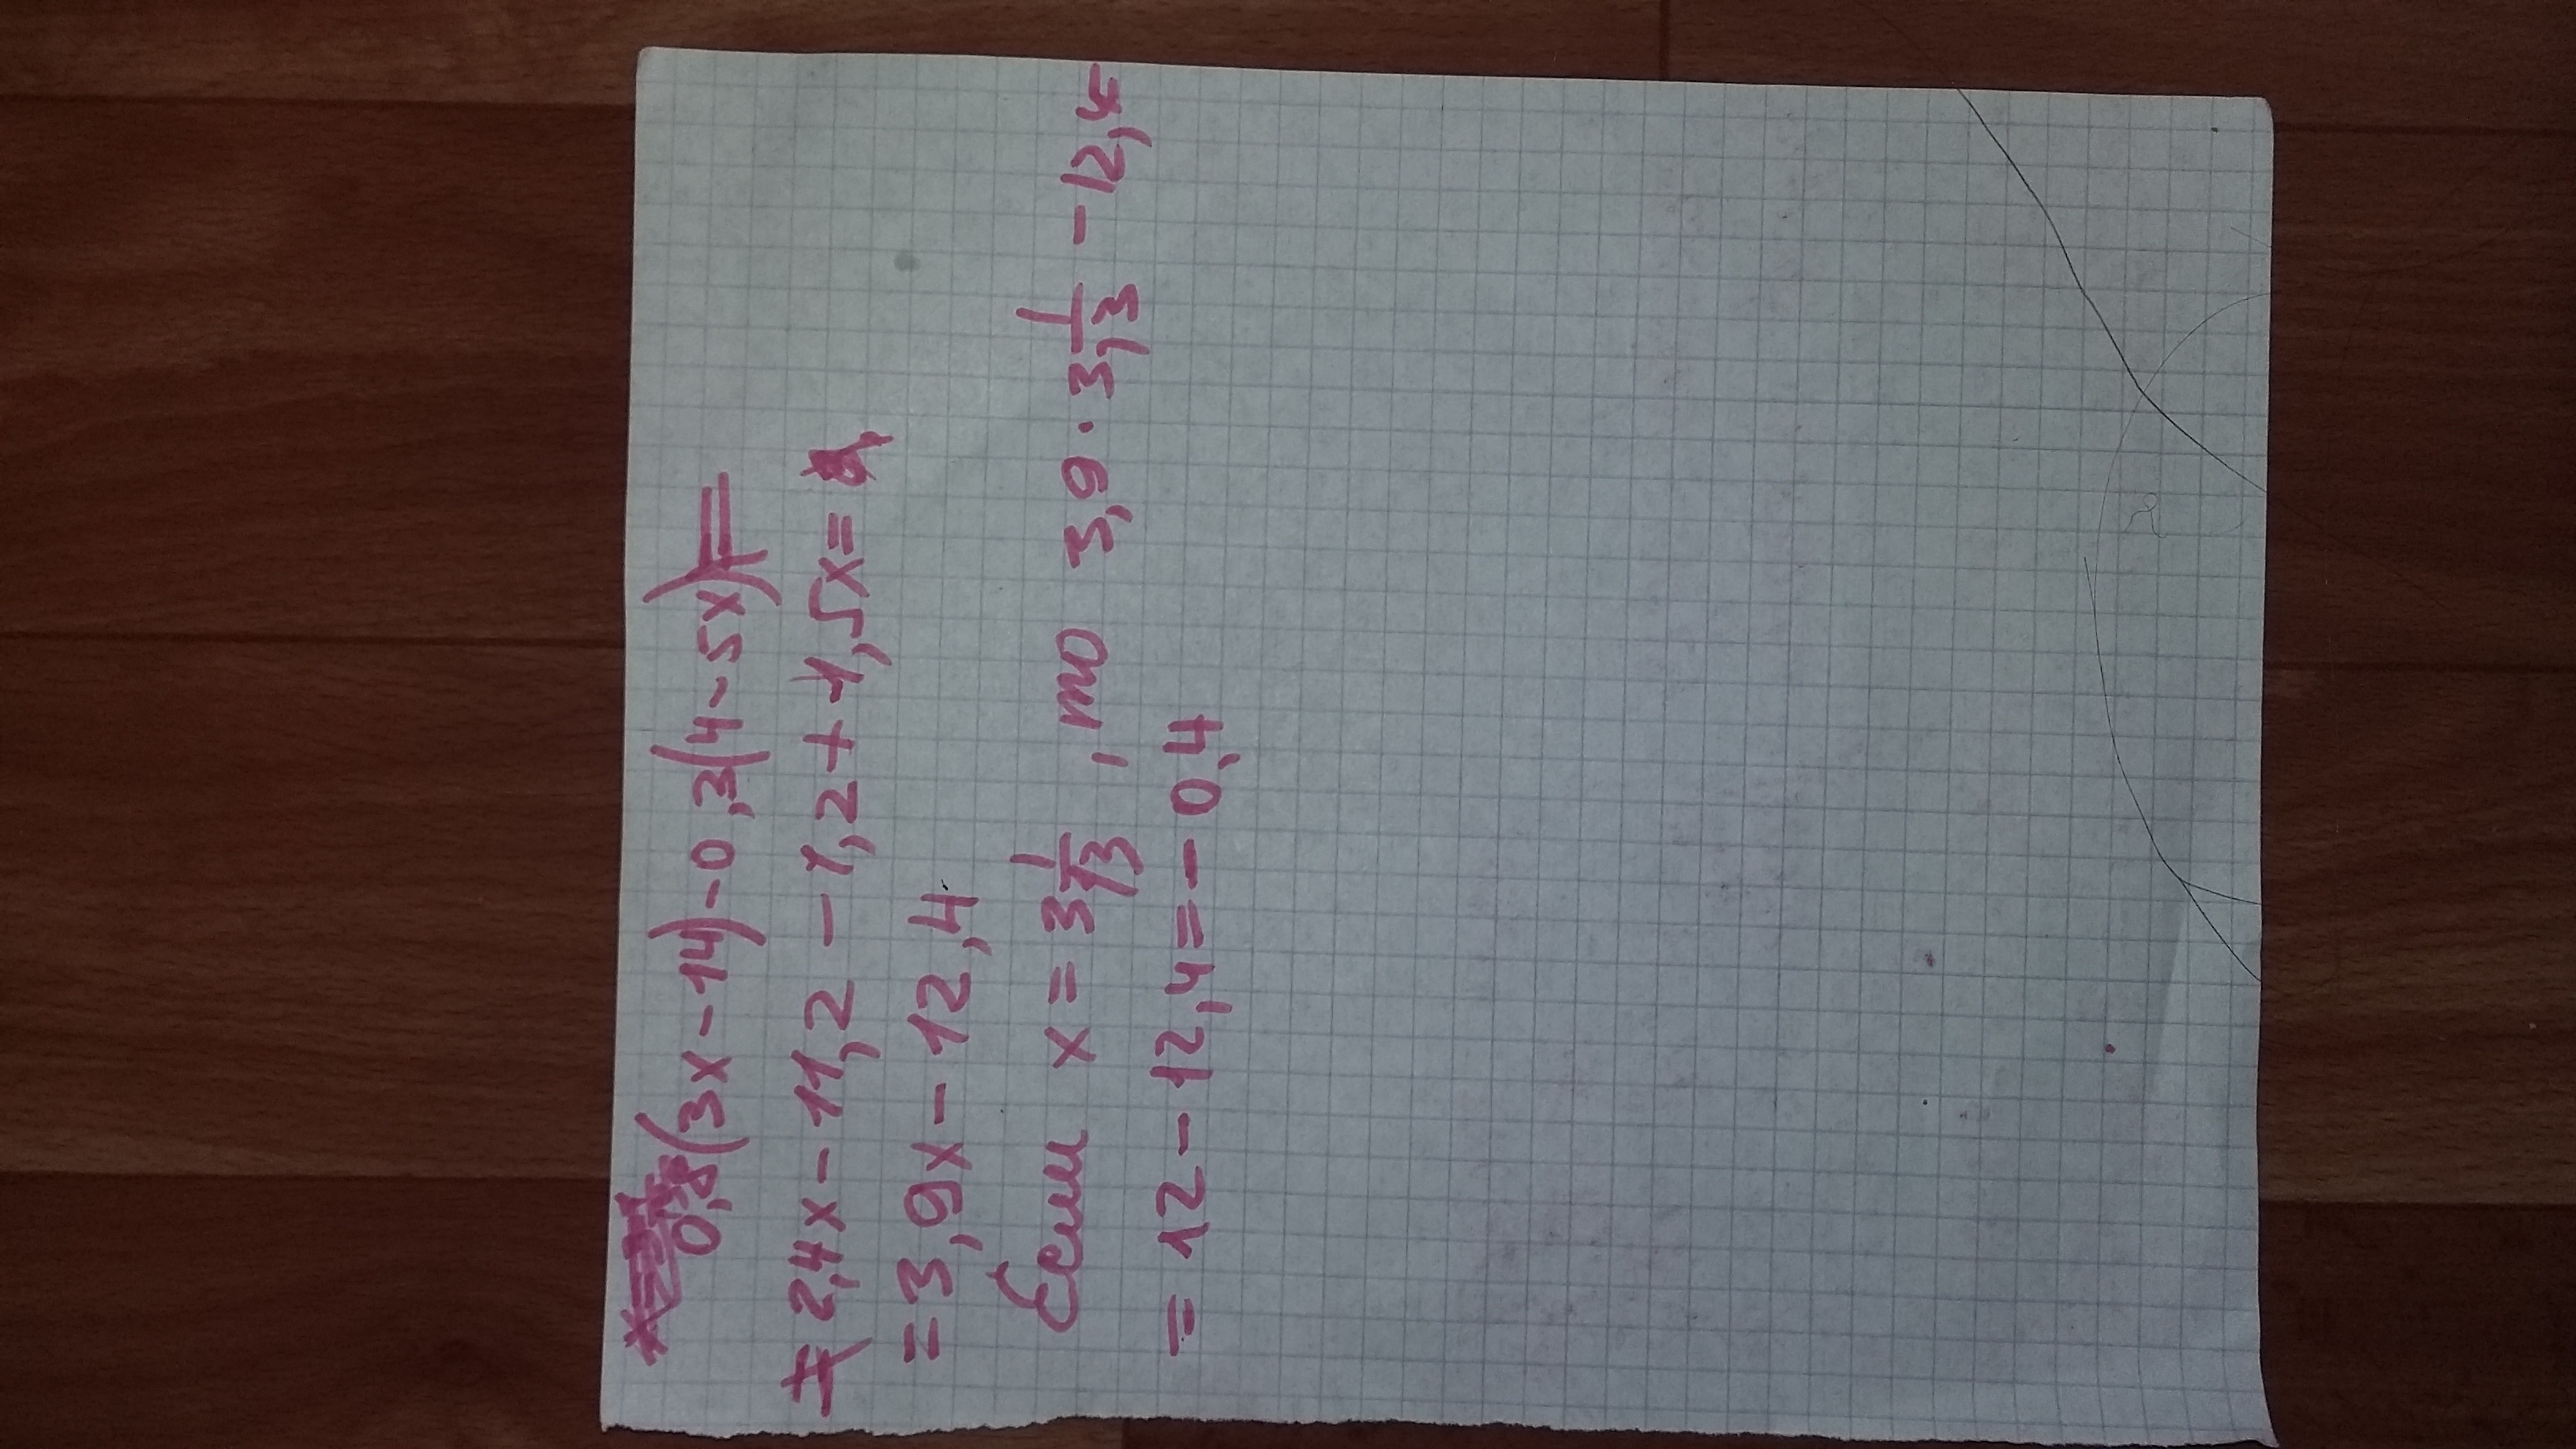 0,8(3x-14)-0,3(4-5x)=
= 2,4x-11,2-1,2+1,5x=
=3,9x-12,4
Если x=3 1/13, то 3,9·3 1/13-12,4=
=12-12,4=-0,4